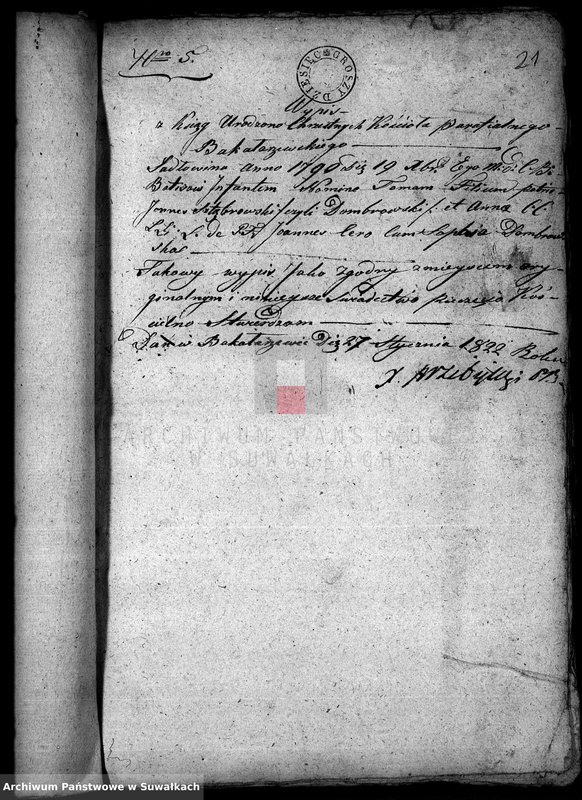 Nro 5.
21
DZIESIĘĆ GROSZY
Wypis
z Księg Urodzono Chrzstnych Kościoła parafialnego
Bakałarzewskiego
Sadłowina Anno 1790 Die 19 Xbr Ego
Batizavi Infantem Nomine Tomam Filium patris
Joannes Dąbrowski czyli Dombrowski et Anna C. C.
L. L. S. de PP Joannes Cero Cum Sophia Dombrow
skas
Takowy wypis Jako zgodny z mieyscem ory-
ginalnym i ninieysze Swiadectwo pieczęcią Koś-
cielną Stwierdzam
Dan w Bakałarzewie Die 27 Stycznia 1822 Roku
X.
ARCHIWUM PAŃSTWOWE
W SUWAŁKACH
Archiwum Państwowe w Suwałkach